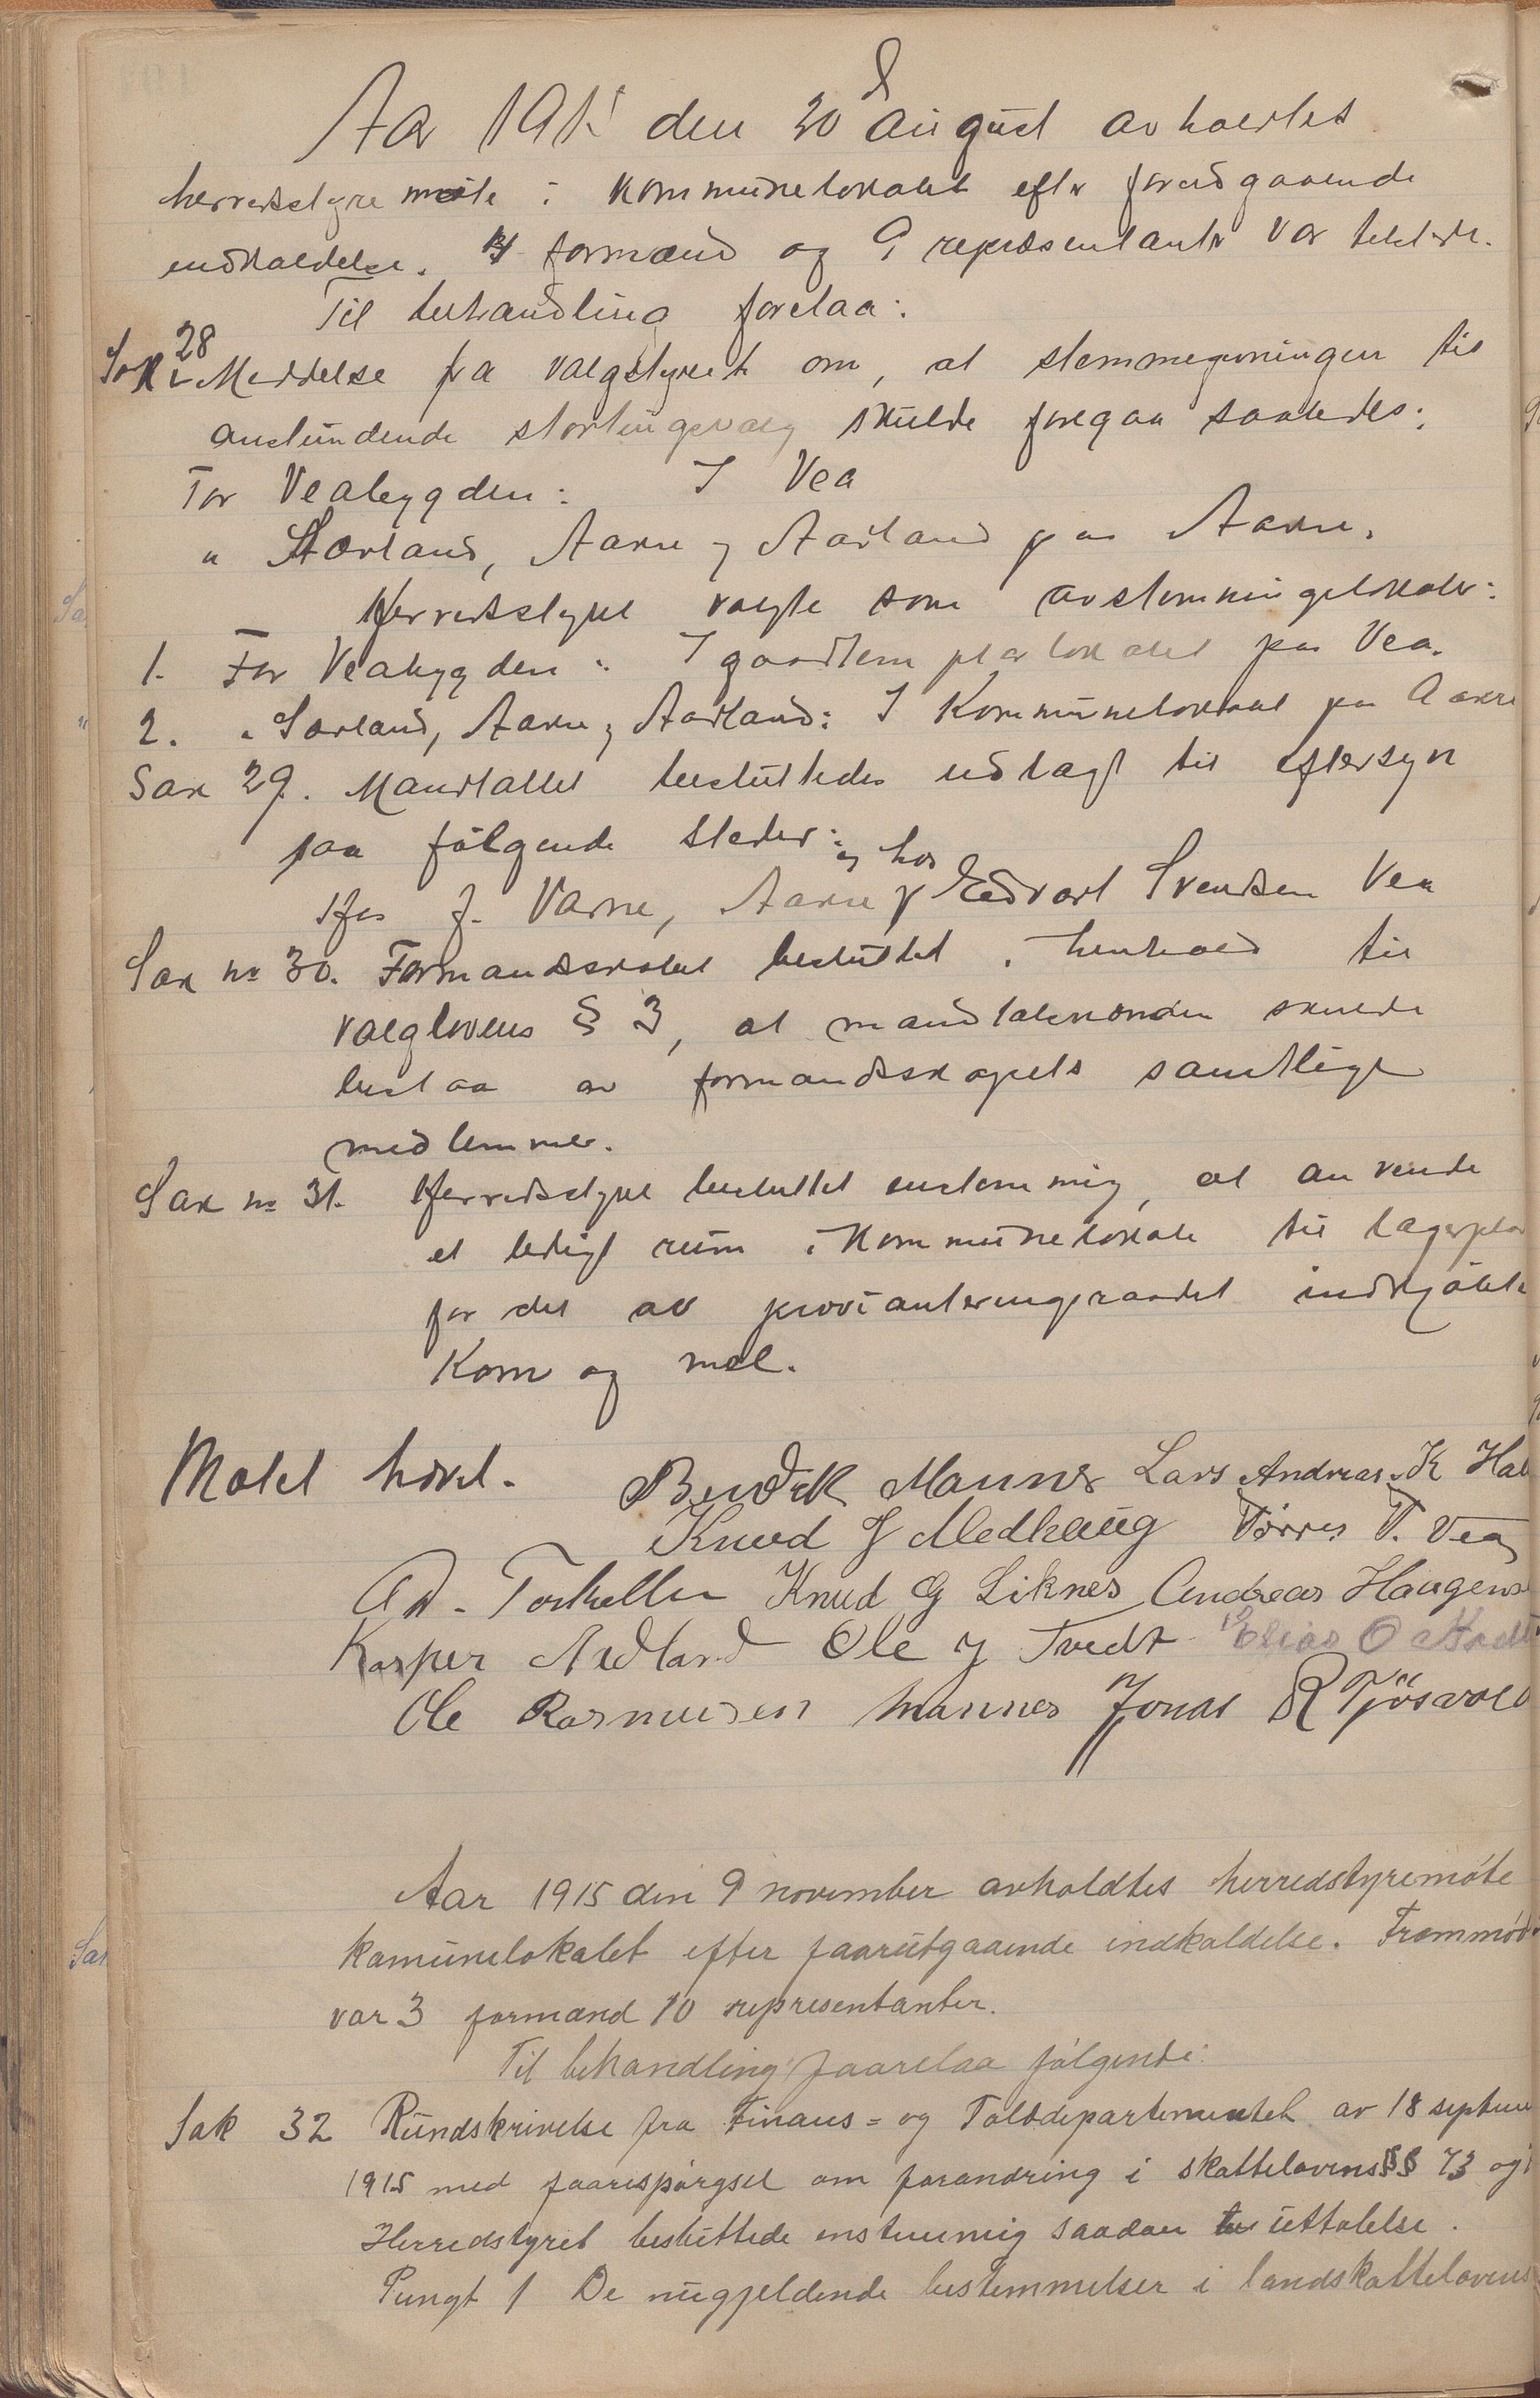 Aar 1915 den 20 august avholdtes
herredsstyremøte i kommunelokalet efter forudgaaende
indkaldelse. 4 formænd og 9 repræsentanter var tilstede.
Til behandling forelaa:
Sak 28 Meddelse fra valgstyret om, at stemmegivningen til
anstundende stortingsvalg skulde foregaa saaledes:
For Veabygden: I Vea
" Sørland, Aakre og Aadland paa Aakre.
Herredsstyret valgte som avstemningslokaler:
1. For Veabygden: I godtemplarlokalet paa Vea.
2. " Sørland, Aakre og Aadland: I Kommunelokalet paa Aakre
Sak 29. Mandtallet besluttedes udlagt til eftersyn
paa følgende steder:
Hos J. Varne, Aakre og hos Edvart Svendsen Vea
Sak nr 30. Formandskabet besluttet i henhold til
valglovens § 3, at mandtalsnævnden skulde
bestaa av formandsskapets samtlige
medlemmer.
Sak nr 31. Herredsstyret besluttet enstemmig, at anvende
et ledigt rum i Kommunelokale til lagerplas
for det av provianteringsraadet indkjøbte
Korn og mel.
Møtet hævet. Bendik Mannes Lars Andreas K Hal
Knud J Medhaug Tørres T. Vea
Ad. Torkellsen Knud G Liknes Andreas Haugens
Kasper Aedland Ole J Tvedt Elias O
Ole Rasmusen Mannes Jonas R Tjøsvold
Aar 1915 den 9 november avholdtes herredstyremøte
kamunelokalet efter faarutgaaende indkaldelse. Frammød
var 3 formænd 10 representanter.
Til behandling faarelaa følgende:
Sak 32 Rundskrivelse fra Finans- og Tolddepartementet av 18 septem
1915 med faarespørgsel om forandring i skattelovens §§ 73 og
Herredstyret besluttede enstemmig saadan uttalelse.
Pungt 1 De nugjeldende bestemmelser i landskattelovens